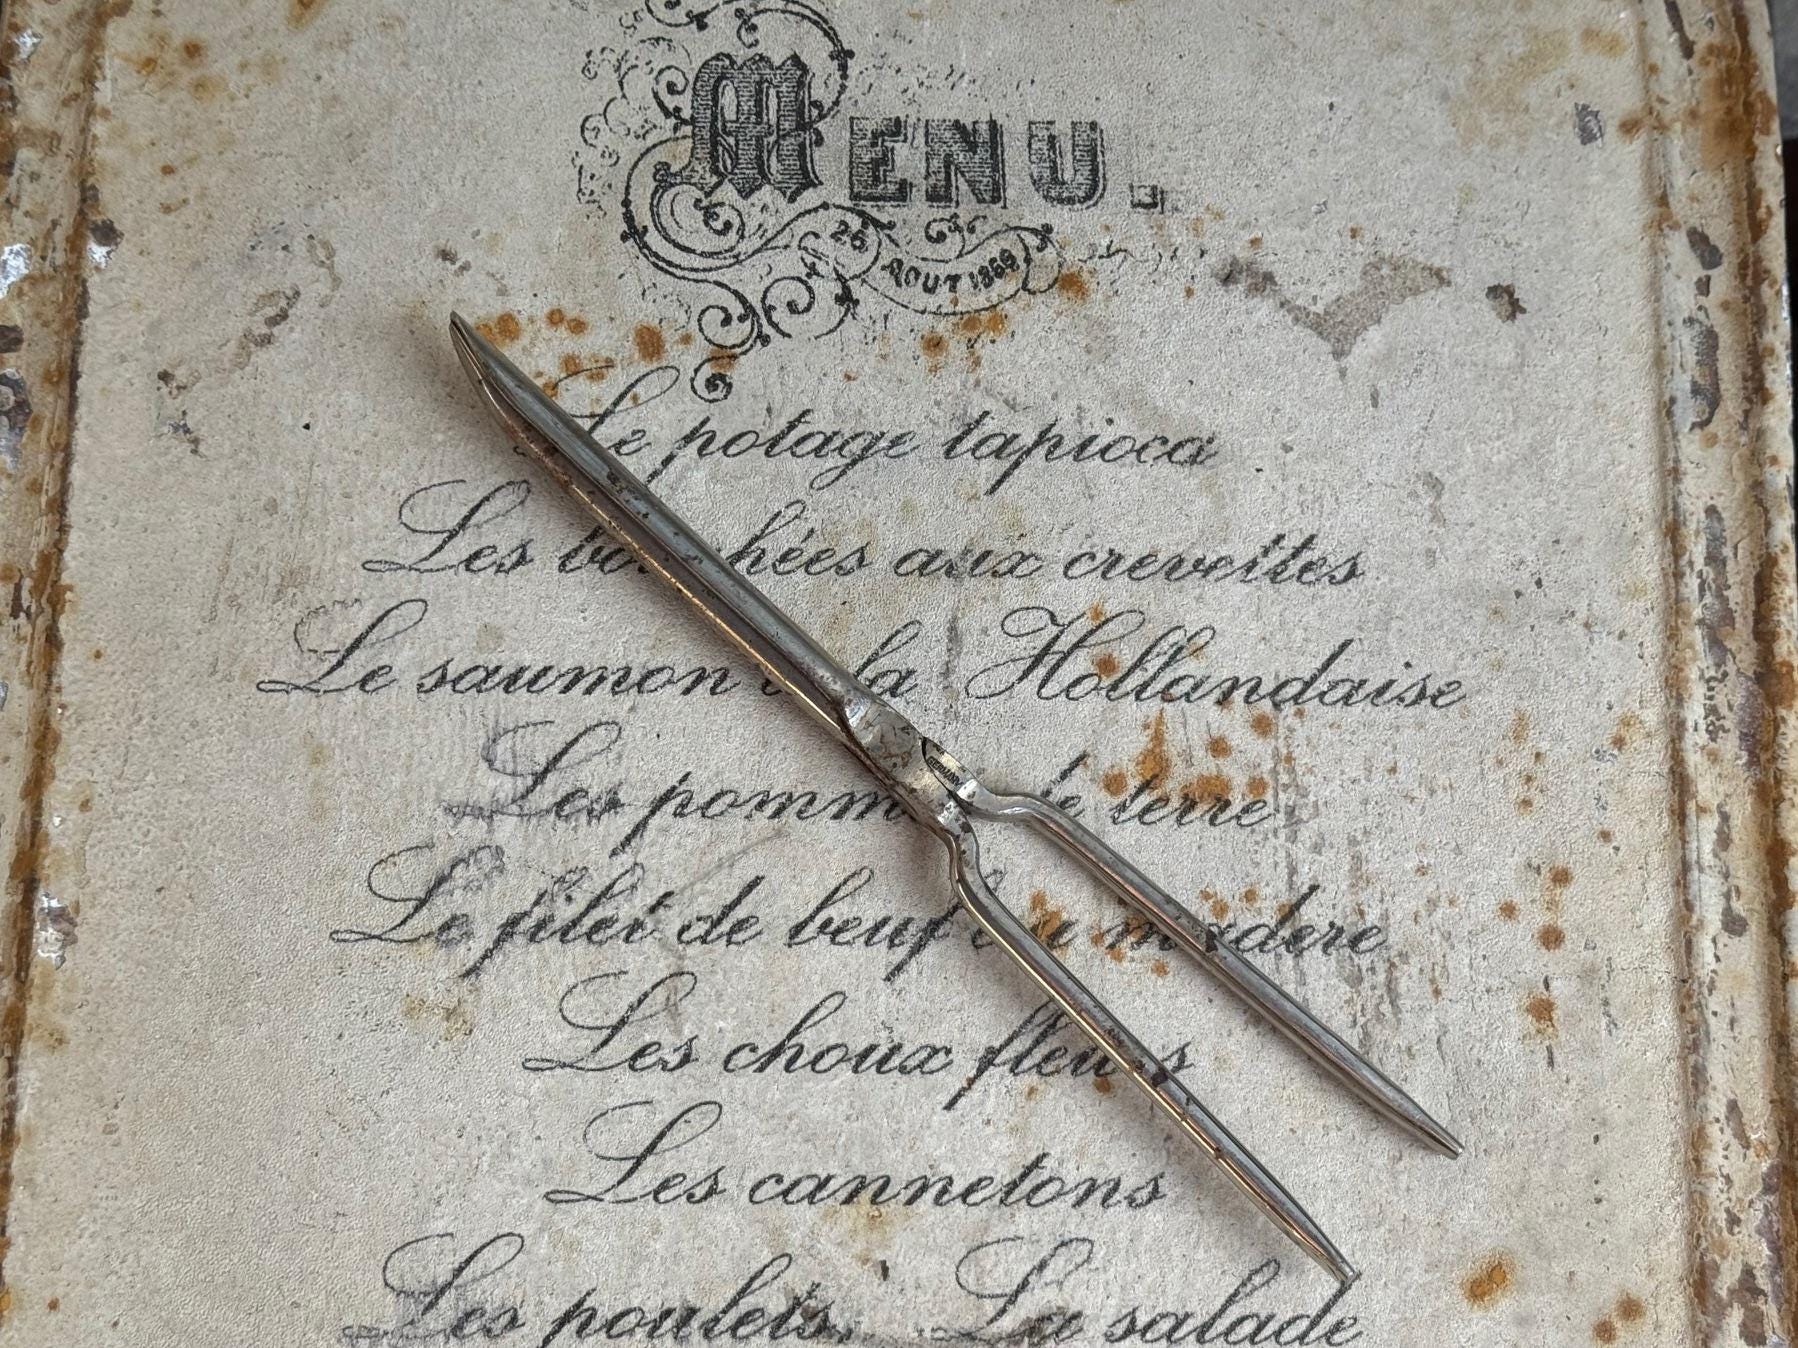 MENU.
26
AOUT 1869
Le potage tapioca
Les bouchées aux crevettes
Le saumon la Hollandaise
GERMANY
Les pomm de terre
Le filet de beuf au madere
Les choux fleurs
Les cannetons
Les poulets. La salade